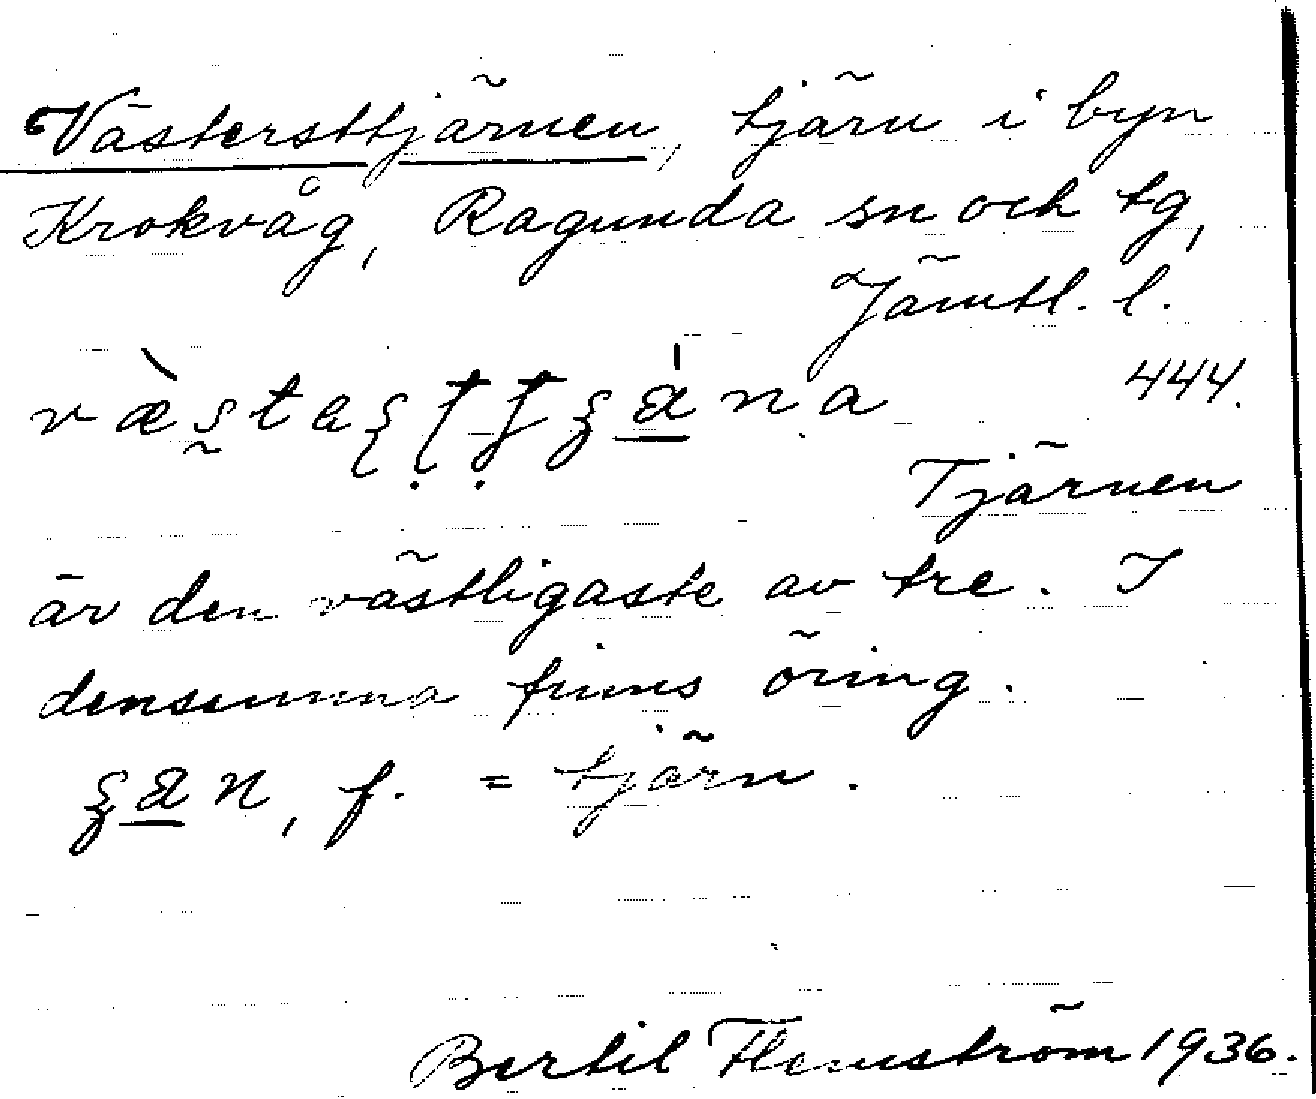 Västersttjärnen, tjärn i byn
Krokvåg, Ragunda sn och tg,
Jämtl. l.
444.
Tjärnen
är den västligaste av tre. I
densamma finns öring.
f. = tjärn.
Bertil Flemström 1936.